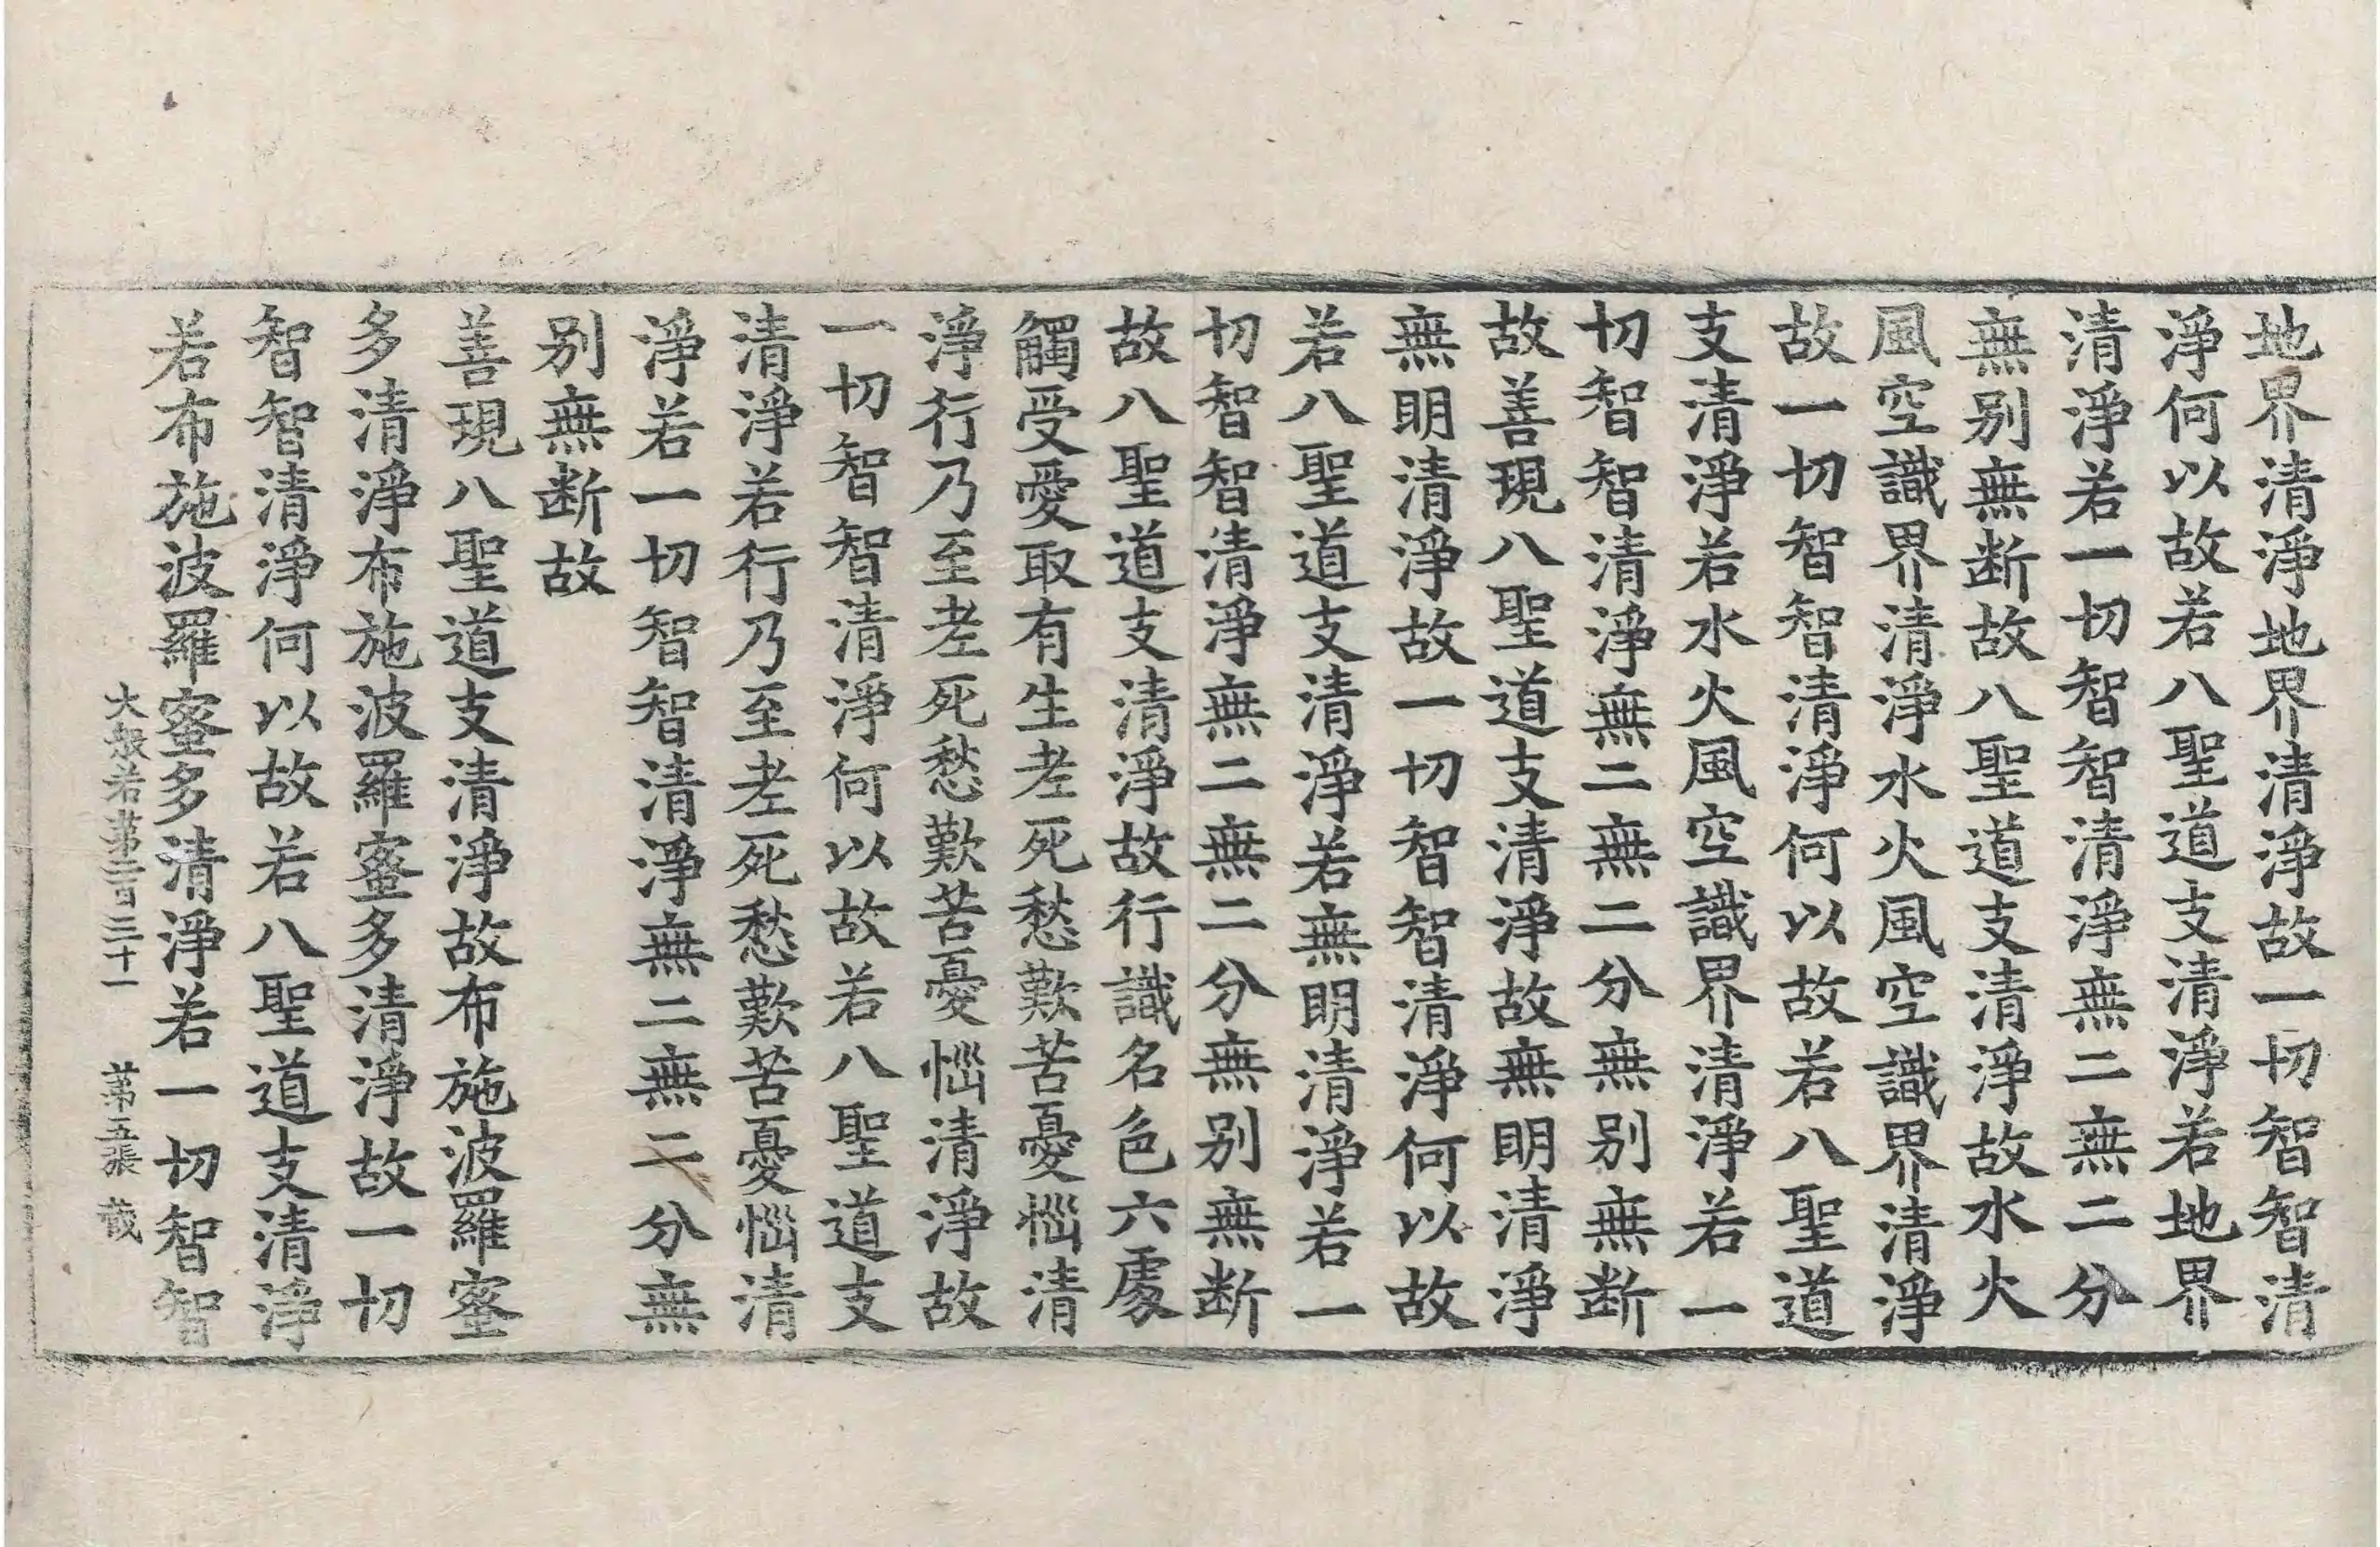 地界清淨地界清淨故一切智智清
淨何以故若八聖道支清淨若地界
清淨若一切智智清淨無二無二分
無别無断故八聖道支清淨故水火
風空識界清淨水火風空識界清淨
故一切智智清淨何以故若八聖道
支清淨若水火風空識界清淨若一
切智智清淨無二無二分無别無断
故善現八聖道支清淨故無明清淨
無明清淨故一切智智清淨何以故
若八聖道支清淨若無明清淨若一
切智智清淨無二無二分無别無断
故八聖道支清淨故行識名色六處
觸受愛取有生老死愁歎苦憂惱清
淨行乃至老死愁歎苦憂惱清淨故
一切智智清淨何以故若八聖道支
清淨若行乃至老死愁歎苦憂惱清
淨若一切智智清淨無二無二分無
别無断故
善現八聖道支清淨故布施波羅蜜
多清淨布施波羅蜜多清淨故一切
智智清淨何以故若八聖道支清淨
若布施波羅蜜多清淨若一切智智
大般若第二百三十一 第五張 荒